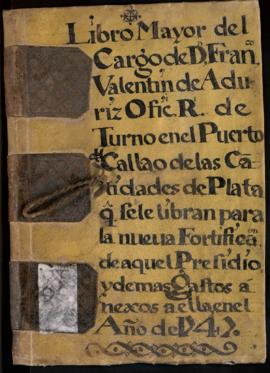 Libro Mayor del
Cargo de Dⁿ. Franᶜᵒ
Valentin de Adu
riz Ofic. R. de
Turno en el Puerto
del Callao de las Cā
tidades de Plata
q̄ se le libran para
la nueva Fortificⁿ
de aquel Presidio
y demas gastos a
nexos a ella en el
Año de